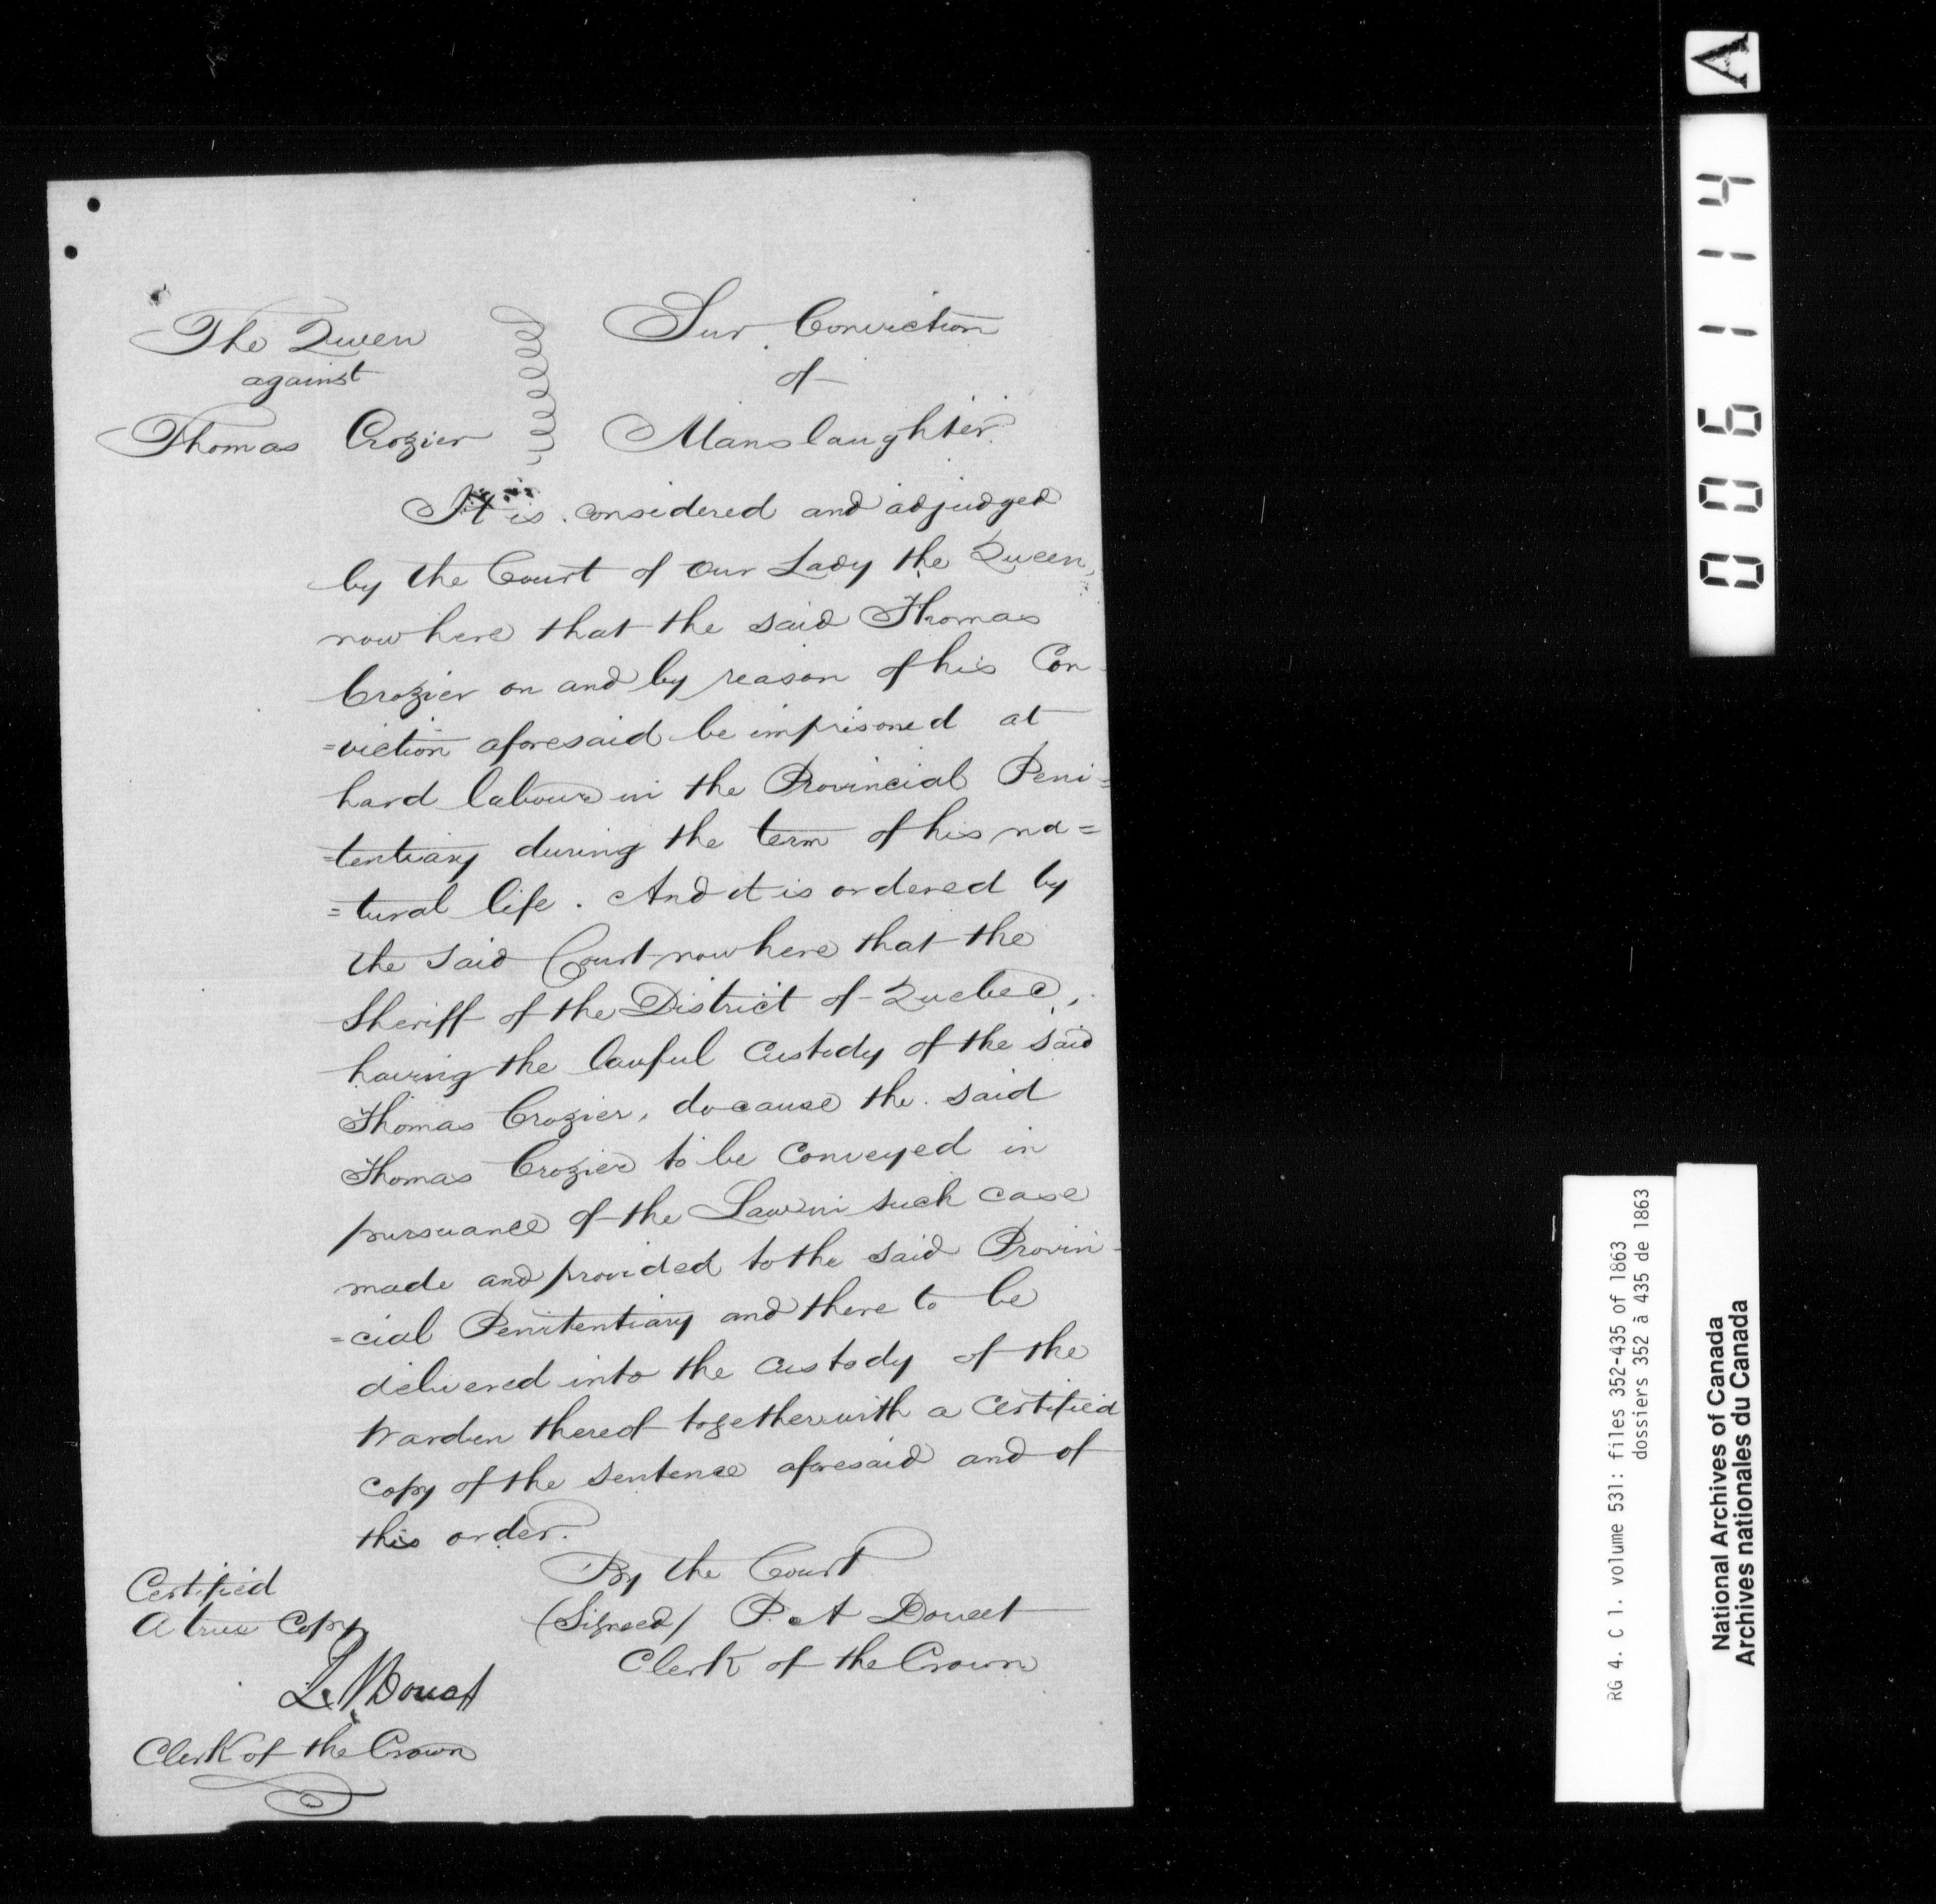 The Queen
against
Thomas Crozier
Sur Conviction
of
Manslaughter.
It is considered and adjudged
by the Court of Our Lady the Queen,
now here that the said Thomas
Crozier on and by reason of his Con-
=viction aforesaid be imprisoned at
hard labour in the Provincial Peni=
=tentiary during the term of his na=
=tural life. And it is ordered by
the said Court now here that the
Sheriff of the District of Quebec,
having the lawful custody of the said
Thomas Crozier, do cause the said
Thomas Crozier to be conveyed in
pursuance of the Law in such case
made and provided to the said Provin-
=cial Penitentiary and there to be
delivered into the custody of the
Warden thereof together with a certified
copy of the sentence aforesaid and of
this order.
By the Court
(Signed) P. A Doucet
Clerk of the Crown
Certified
A true Copy
Doucet
Clerk of the Crown
A
006114
RG 4. C 1. volume 531: files 352-435 of 1863
dossiers 352 à 435 de 1863
National Archives of Canada
Archives nationales du Canada